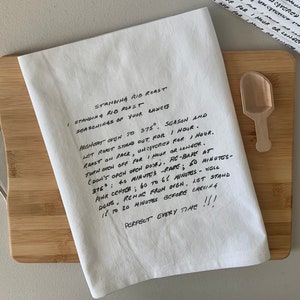 STANDING RIB ROAST
1 STANDING RIB ROAST
SEASONINGS OF YOUR CHOICE
PREHEAT OVEN TO 375°. SEASON AND
LET ROAST STAND OUT FOR 1 HOUR.
ROAST ON RACK, UNCOVERED FOR 1 HOUR.
TURN OVEN OFF FOR 1 HOUR OR LONGER.
(DON'T OPEN OVEN DOOR). RE-BAKE AT
375°. 40 MINUTES - RARE; 50 MINUTES -
PINK CENTER; 60 TO 65 MINUTES - WELL
DONE. REMOVE FROM OVEN. LET STAND
15 TO 20 MINUTES BEFORE CARVING
PERFECT EVERY TIME!!!